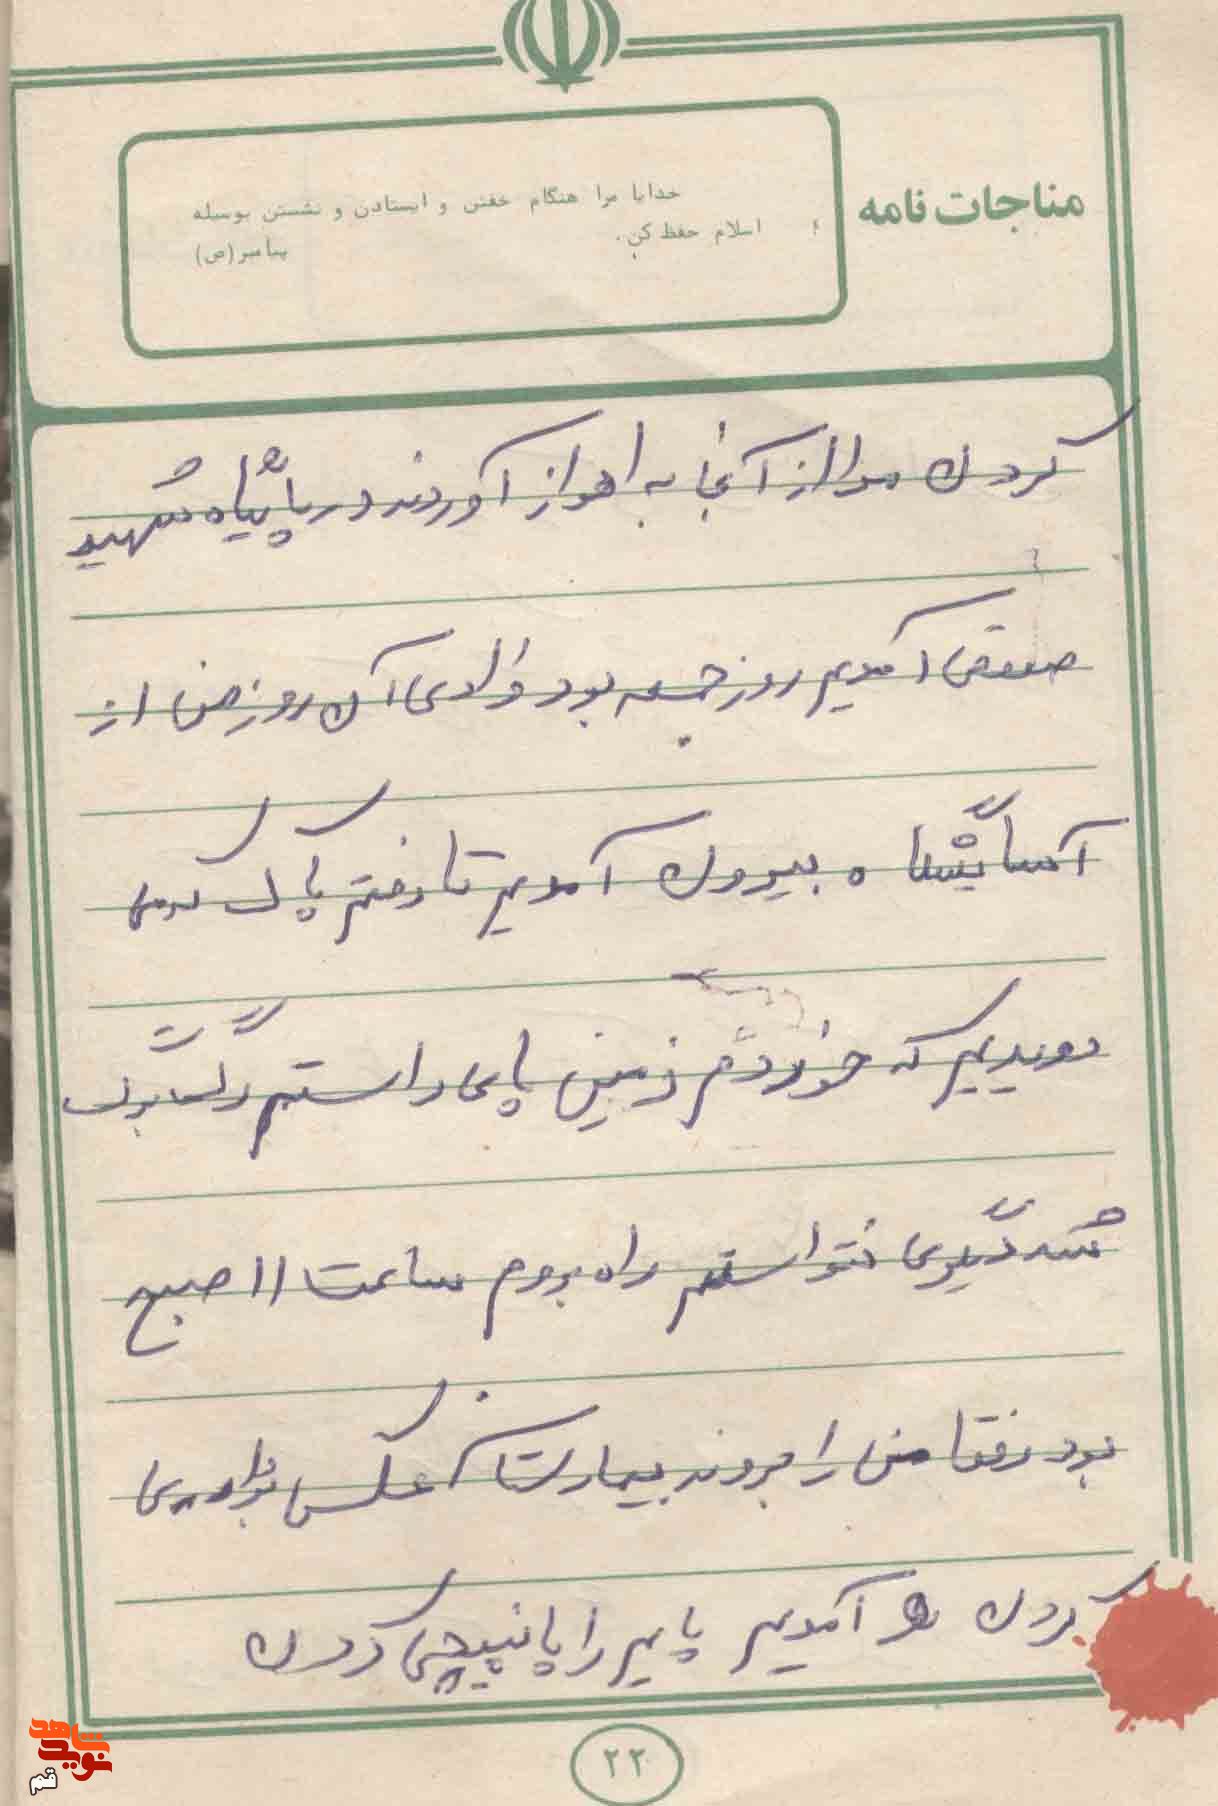 مناجات نامه
خدایا مرا هنگام خفتن و ایستادن و نشستن بوسیله
اسلام حفظ کن.
پیامبر(ص)
کردن از آنجا به اهواز آوردند در پایگاه شهید
آمدیم روز جمعه بود آن روز من از
آسایشگاه بیرون آمدیم تا رفتم پارک
دویدیم که خوردم زمین پای راستم
شد دیگری نتوانستم راه بروم ساعت ۱۱ صبح
بود رفقا من را بردند بیمارستان عکس برداری
کردن آمدیم پایم را پانپیچی کردن
۲۲
نوید شاهد
قم